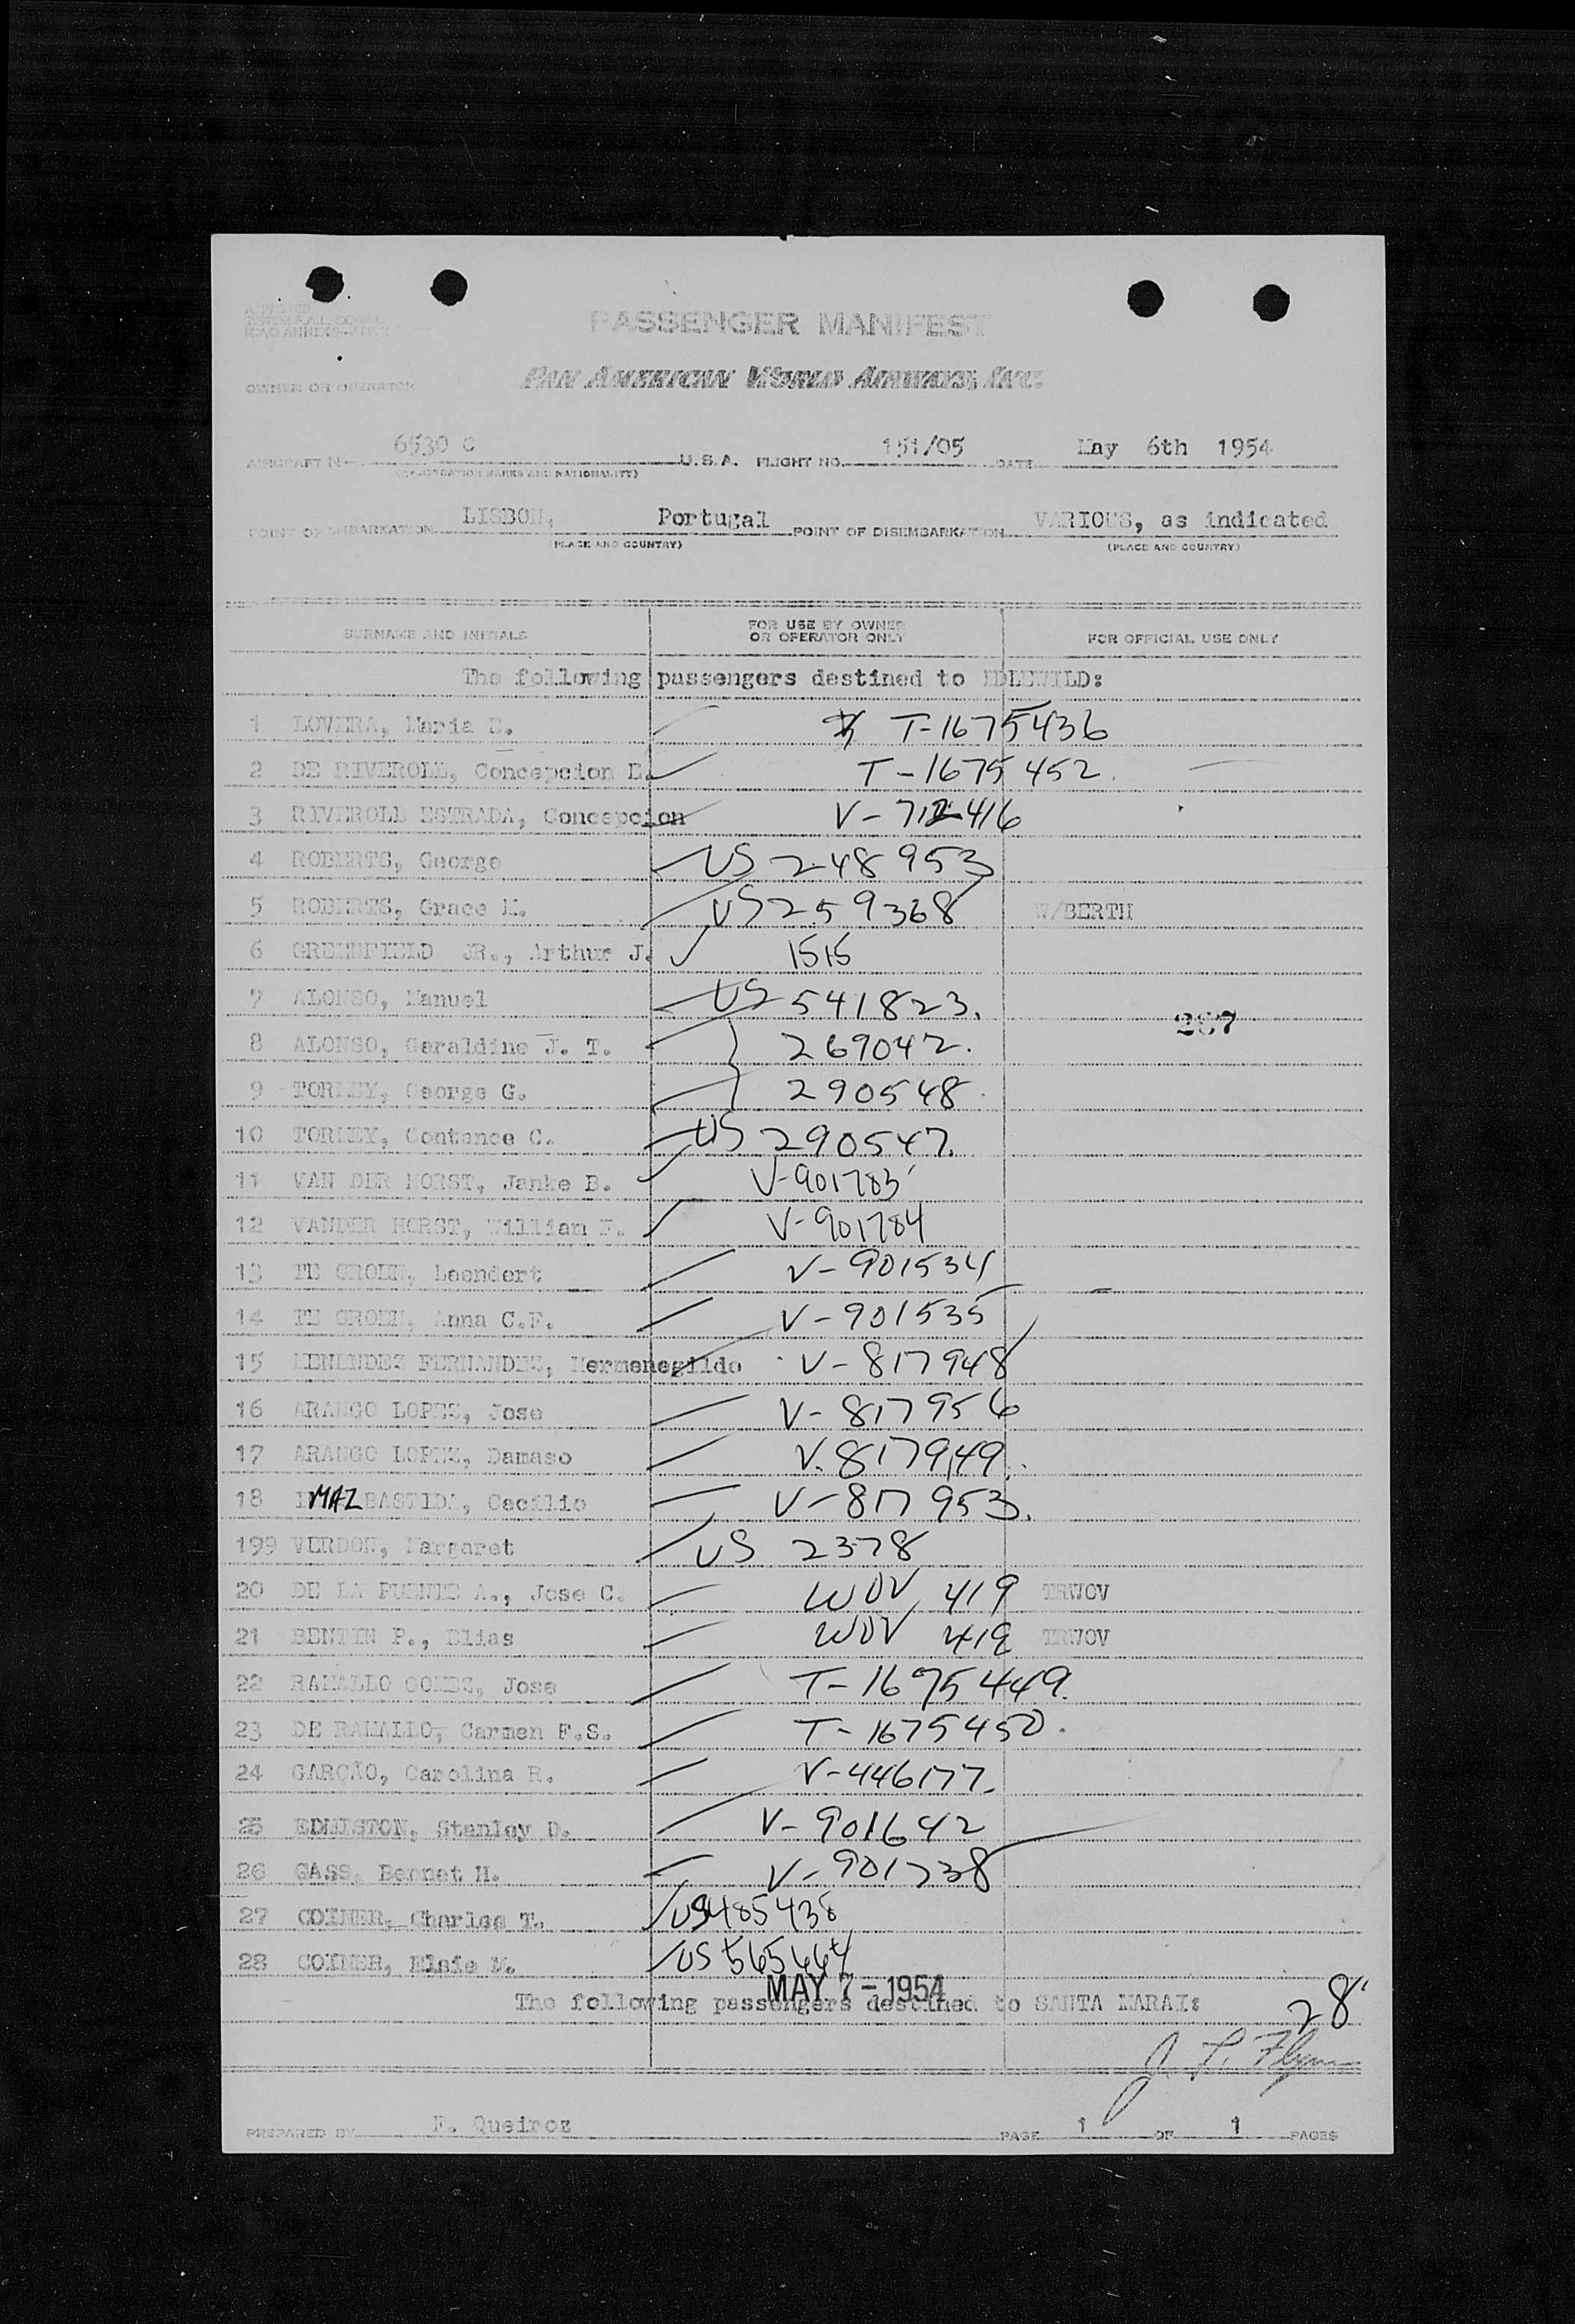 PASSENGER MANIFEST
PAN AMERICAN WORLD AIRWAYS, INC.
OWNER OR OPERATOR
AIRCRAFT 6530 C U.S.A. FLIGHT NO. 151/05 DATE May 6th 1954
(REGISTRATION MARKS AND NATIONALITY)
POINT OF EMBARKATION LISBON, Portugal POINT OF DISEMBARKATION VARIOUS, as indicated
(PLACE AND COUNTRY) (PLACE AND COUNTRY)
SURNAME AND INITIALS FOR USE BY OWNER OR OPERATOR ONLY FOR OFFICIAL USE ONLY
The following passengers destined to IDLEWILD:
1 LOVERA, Maria T-1675436
2 DE RIVEROLL, Concepcion E. T-1675452
3 RIVEROLL ESTRADA, Concepcion V-712416
4 ROBERTS, George US 248953
5 ROBERTS, Grace M. US 259368 W/BERTH
6 GREENFIELD JR., Arthur J. 1515
7 ALONSO, Manuel US 541823.
267
8 ALONSO, Geraldine J. T. 269042.
9 TORMEY, George G. 290548
10 TORMEY, Contance C. US 290547.
11 VAN DER HORST, Janke B. V-901783
12 VANDER HORST, William F. V-901784
13 TE GROEN, Leendert V-901534
14 TE GROEN, Anna C.F. V-901535
15 MENENDEZ FERNANDEZ, Hermenegildo V-817948
16 ARANGO LOPEZ, Jose V-817956
17 ARANGO LOPEZ, Damaso V.817949.
18 MAZ BASTIDA, Cecilio V-817953.
199 VERDON, Margaret US 2378
20 DE LA FUENTE A., Jose C. WOV 419 TRWOV
21 BENTIN P., Elias WOV 419 TRWOV
22 RAMALLO GOMEZ, Jose T-1675449.
23 DE RAMALLO, Carmen F.S. T-1675450.
24 GARÇÃO, Carolina R. V-446177.
25 EDMISTON, Stanley D. V-901642
26 GASS, Bennet H. V-901738
27 COINER, Charles T. US485438
28 COINER, Elsie M. US 565664
MAY 7-1954
The following passengers destined to SANTA MARAI:
28
J. L. Flynn
PREPARED BY F. Queiroz PAGE 1 OF 1 PAGES